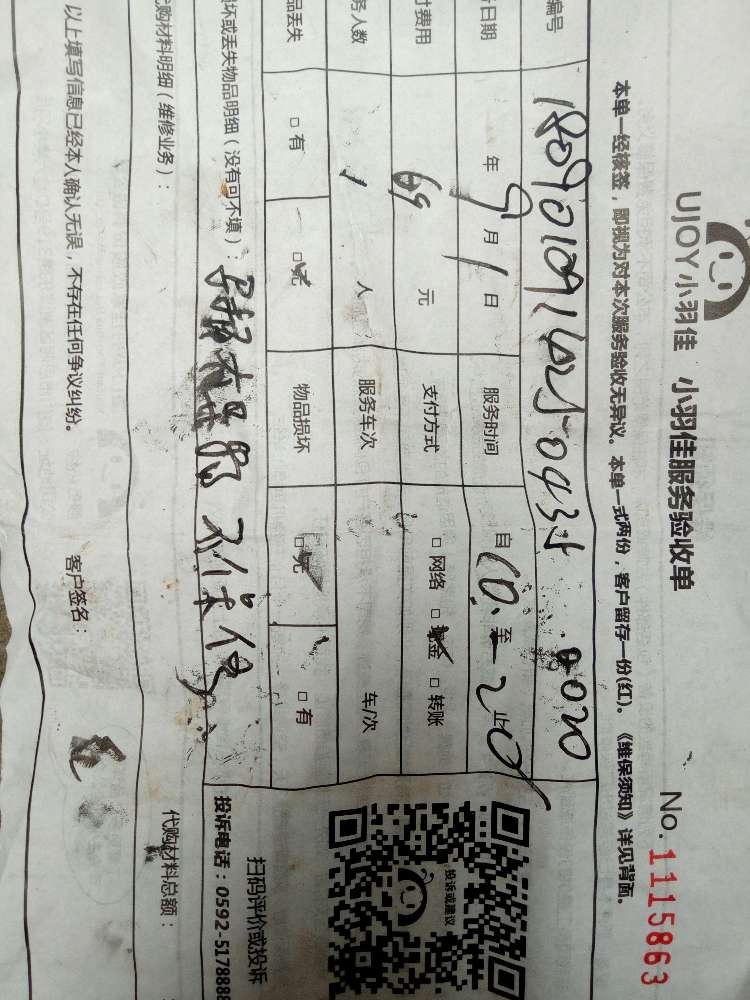 UJOY小羽佳 小羽佳服务验收单
No.1115863
本单一经核签，即视为对本次服务验收无异议。本单一式两份，客户留存一份(红)。《维保须知》详见背面。
编号
日期 年 9 月 1 日 服务时间 自 10. 至 止
付费用 69 元 支付方式 □ 网络 □ 现金 □ 转账
务人数 1 人 服务车次 车/次
品丢失 □ 有 □ 无 物品损坏 □ 无 □ 有
坏或丢失物品明细（没有可不填）： 不保修
购材料明细（维修业务）： 代购材料总额：
以上填写信息已经本人确认无误，不存在任何争议纠纷。 客户签名：
投诉或建议
扫码评价或投诉
投诉电话：0592-5178888